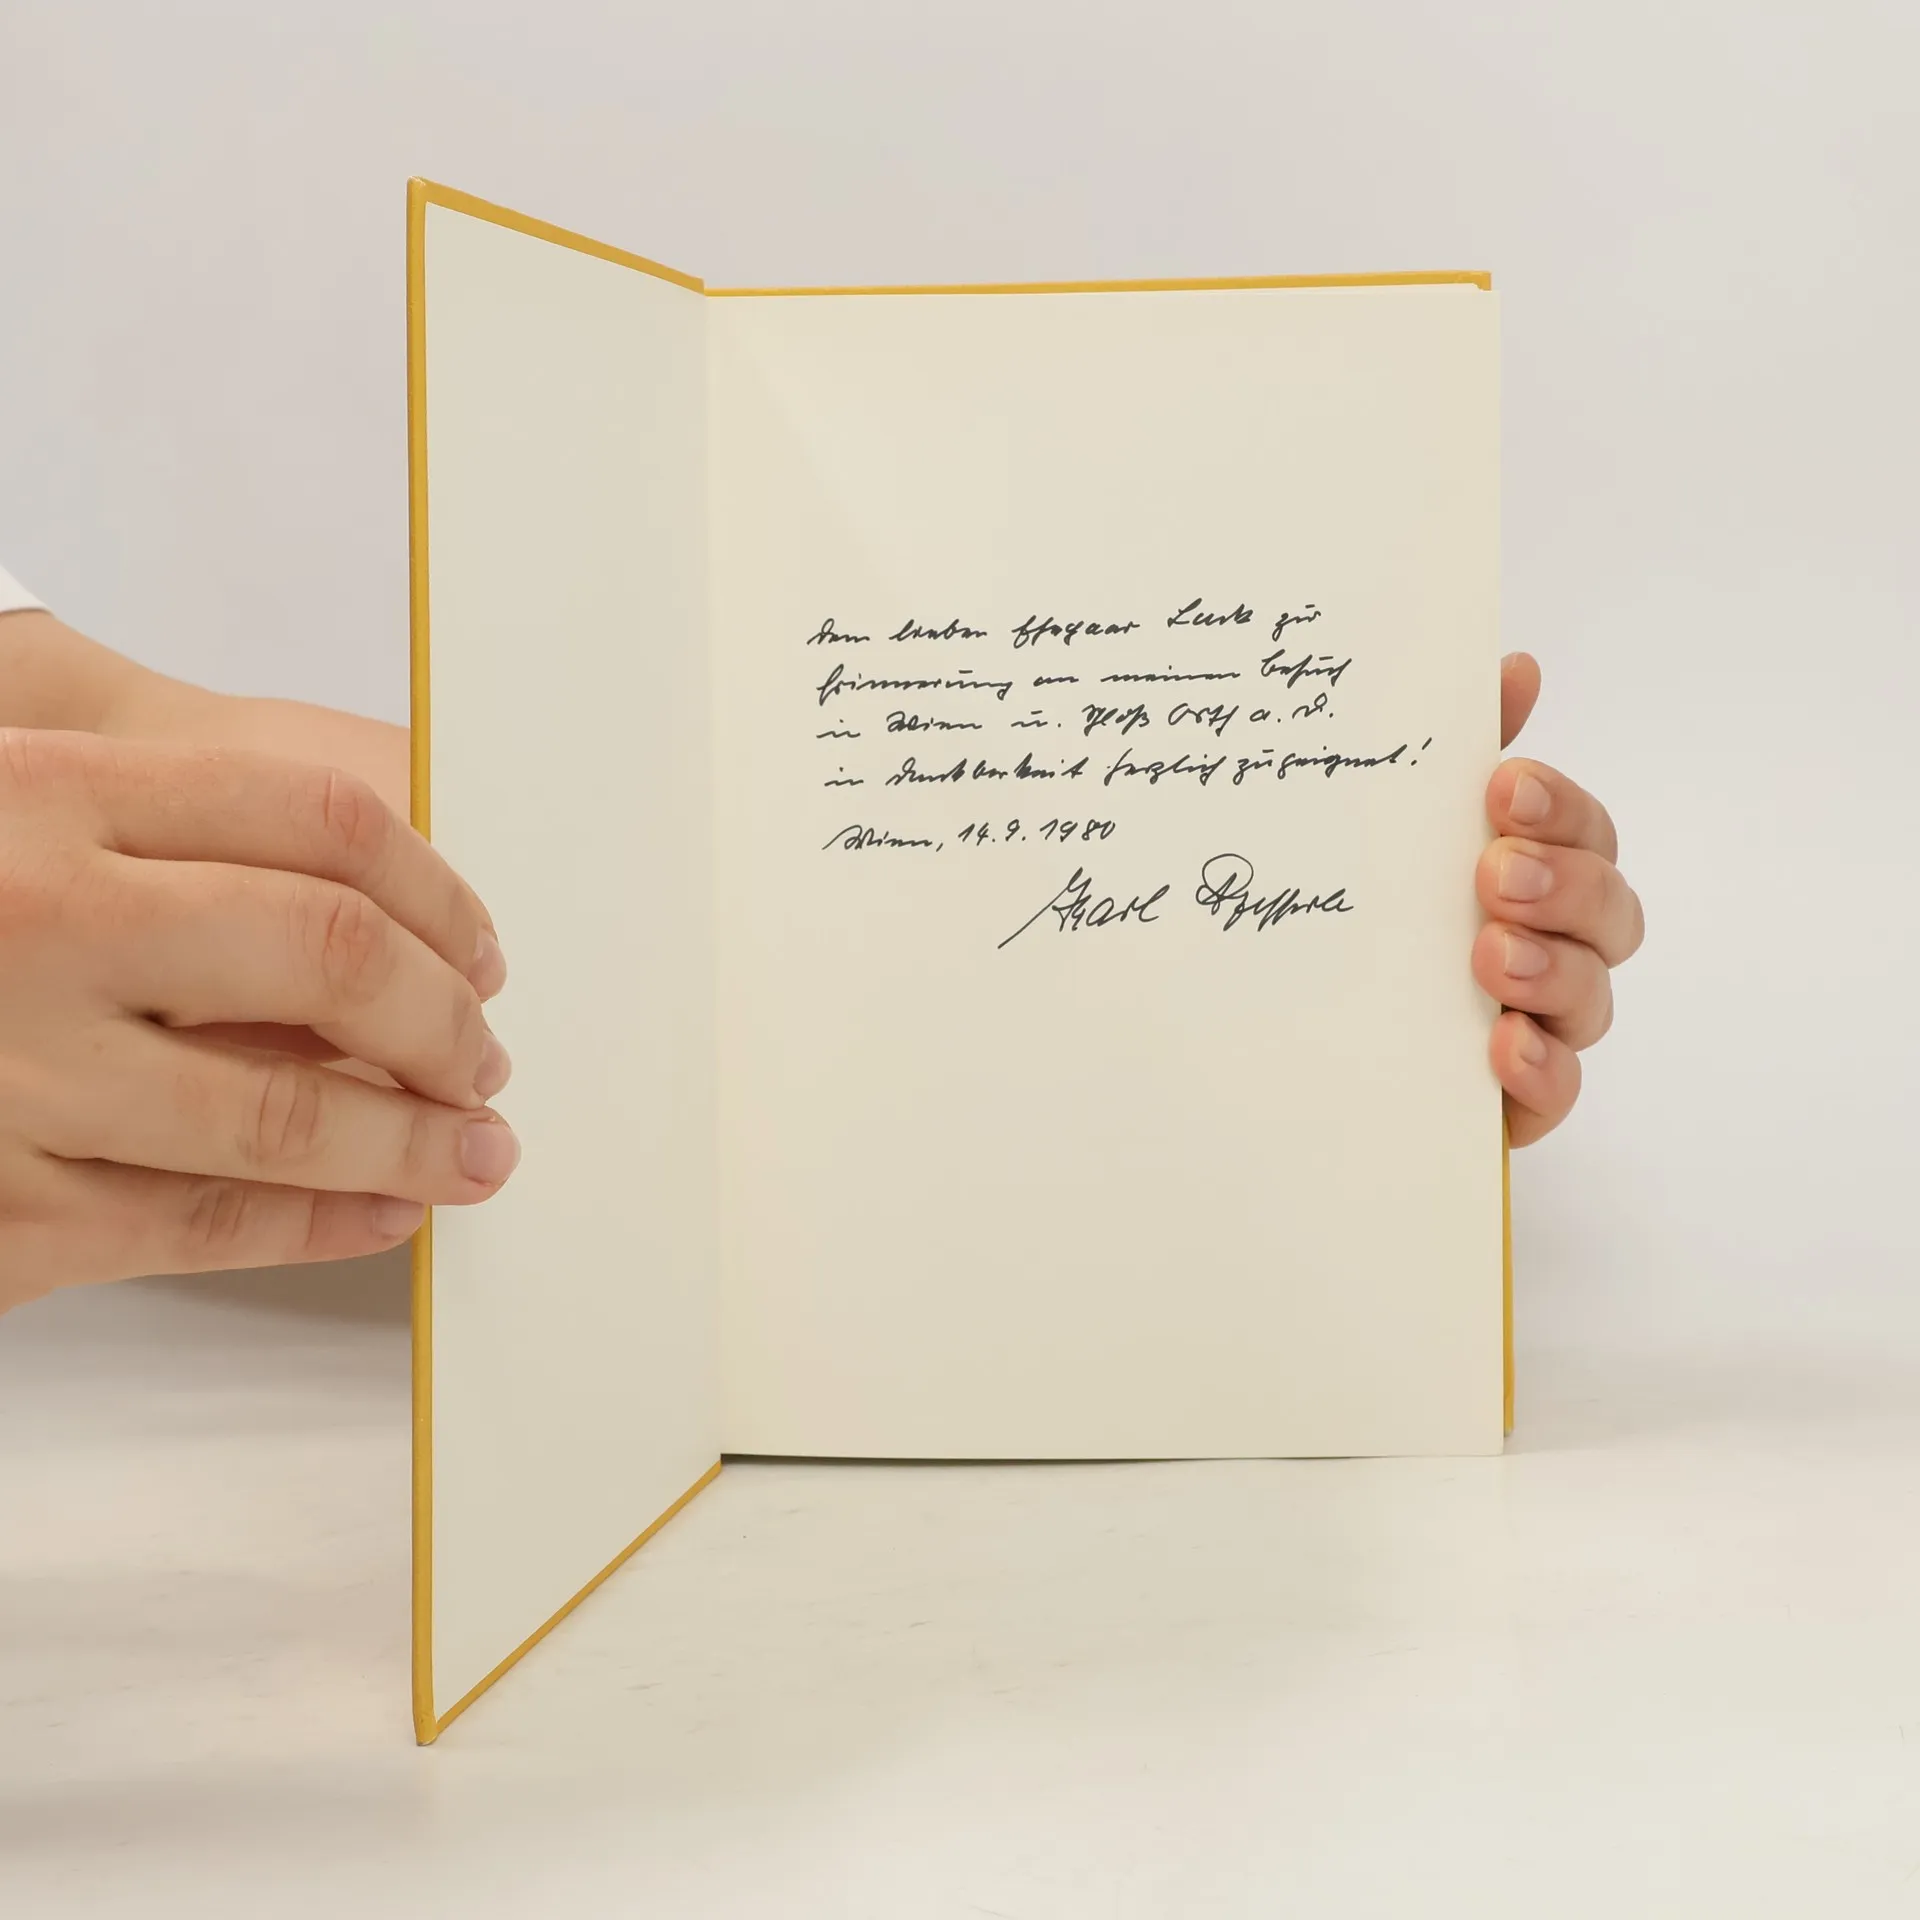 Dem lieben Ehepaar Lack zur
Erinnerung an meinen Besuch
in Wien u. Schloß Orth a. d. D.
in Dankbarkeit herzlich zugeeignet!
Wien, 14.9.1980
Karl